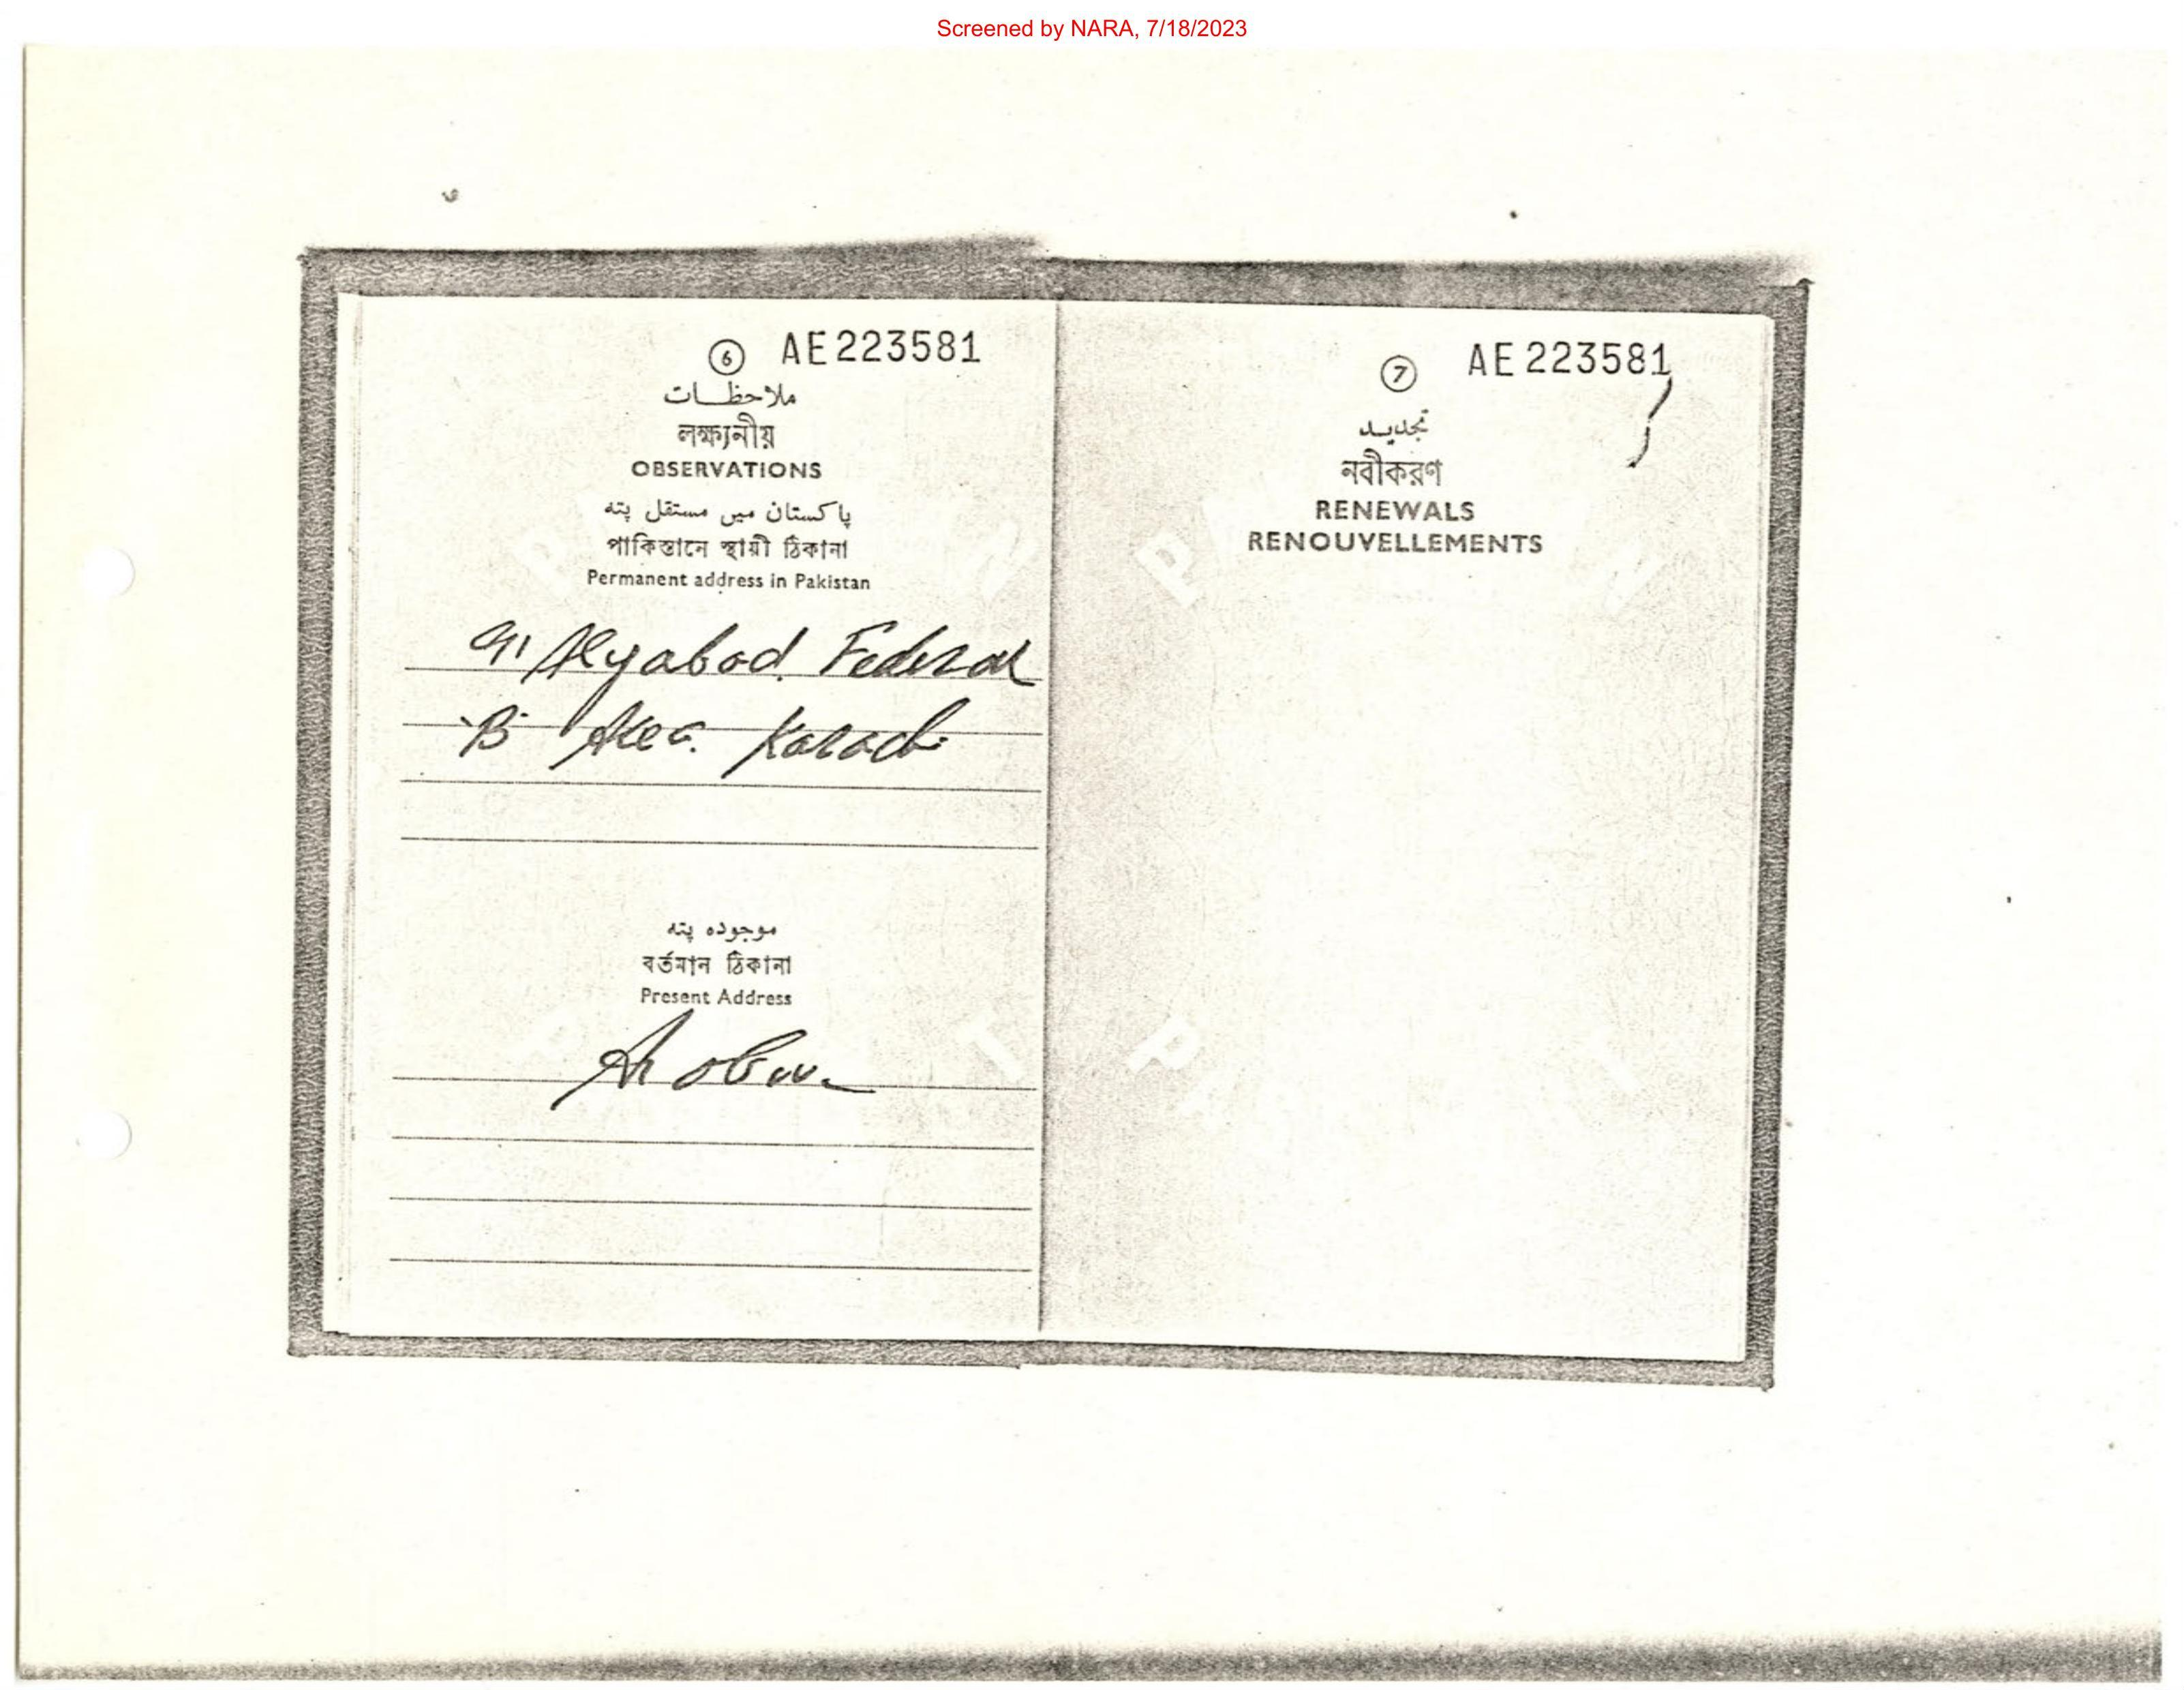 Screened by NARA, 7/18/2023
6 AE223581
ملاحظات
লক্ষ্যনীয়
OBSERVATIONS
پاکستان میں مستقل پتہ
পাকিস্তানে স্থায়ী ঠিকানা
Permanent address in Pakistan
91 Alyabad. Federal
"B" Area. Karachi
موجودہ پتہ
বর্তমান ঠিকানা
Present Address
As above
7 AE223581
تجدید
নবীকরণ
RENEWALS
RENOUVELLEMENTS